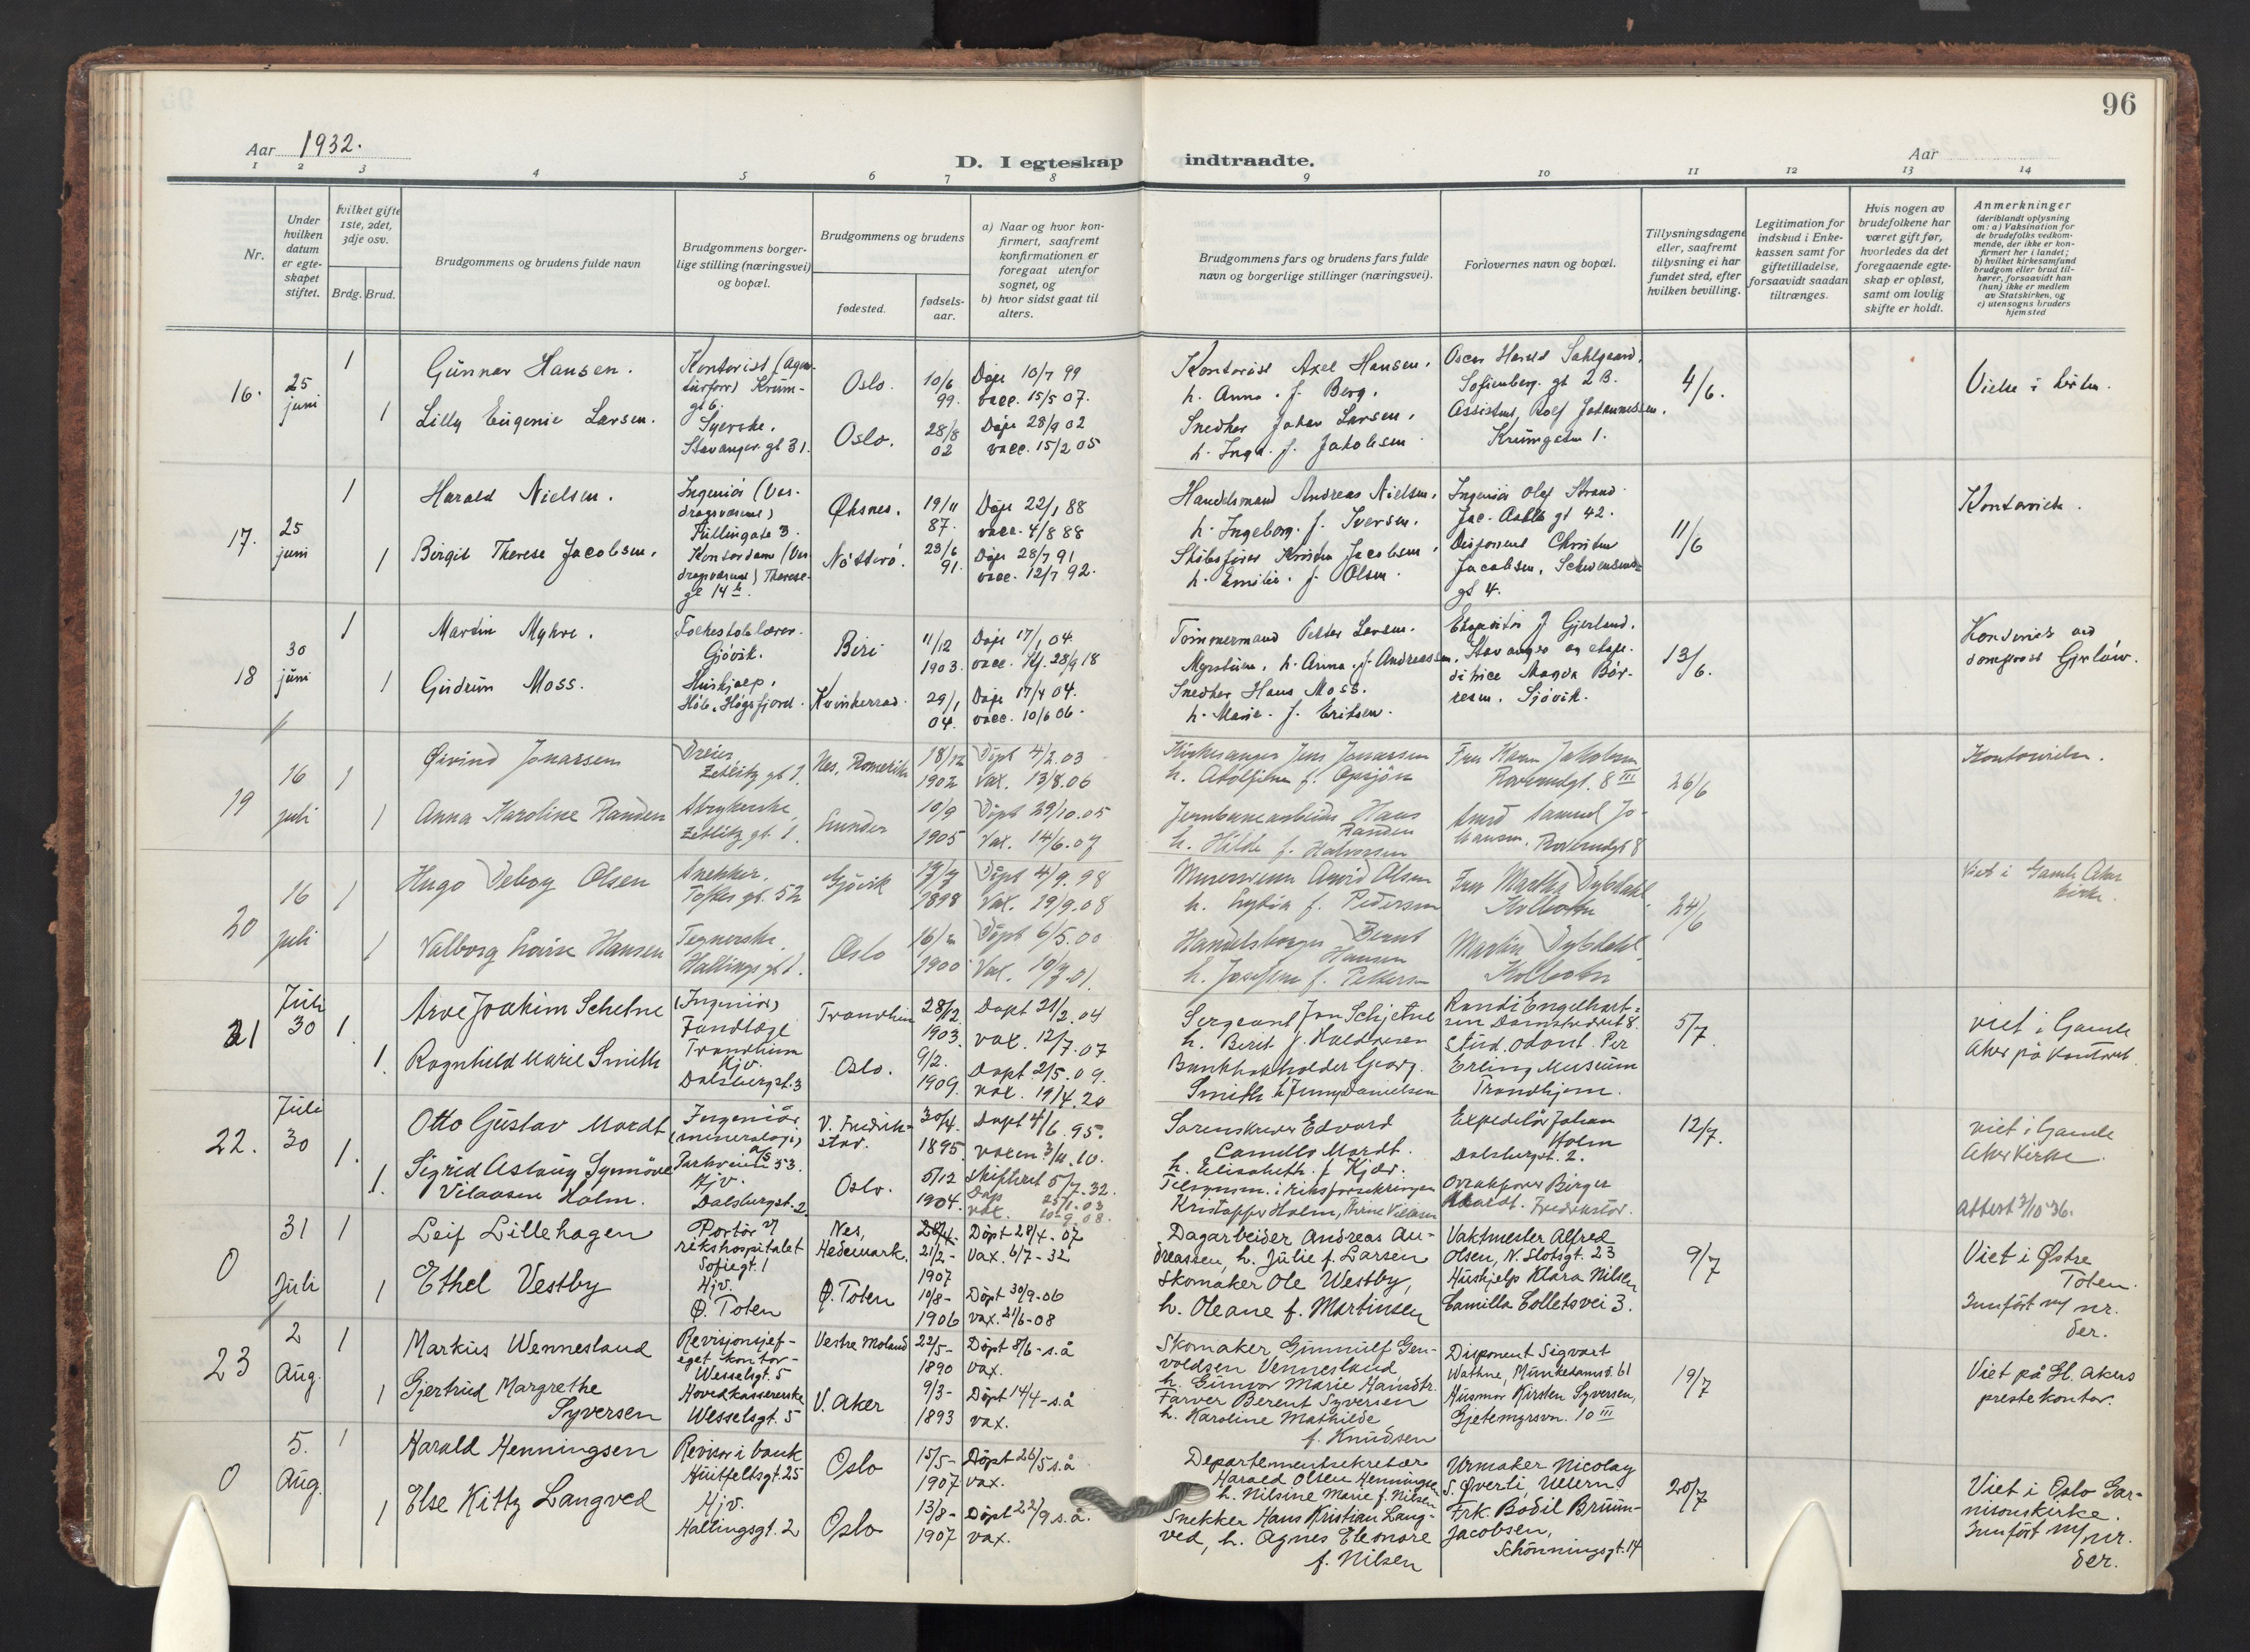 96
Aar 1932.
D. I egteskap indtraadte.
Aar
1 2 3 4 5 6 7 8 9 10 11 12 13 14
Nr.
Under
hvilken
datum
er egte-
skapet
stiftet.
Hvilket gifte
1ste, 2det,
3dje osv.
Brdg. Brud.
Brudgommens og brudens fulde navn
Brudgommens borger-
lige stilling (næringsvei)
og bopæl.
Brudgommens og brudens
fødested.
fødsels-
aar.
a) Naar og hvor kon-
firmert, saafremt
konfirmationen er
foregaat utenfor
sognet, og
b) hvor sidst gaat til
alters.
Brudgommens fars og brudens fars fulde
navn og borgerlige stillinger (næringsvei).
Forlovernes navn og bopæl.
Tillysningsdagene
eller, saafremt
tillysning ei har
fundet sted, efter
hvilken bevilling.
Legitimation for
indskud i Enke-
kassen samt for
giftetilladelse,
forsaavidt saadan
tiltrænges.
Hvis nogen av
brudefolkene har
været gift før,
hvorledes da det
foregaaende egte-
skap er opløst,
samt om lovlig
skifte er holdt.
Anmerkninger
(deriblandt oplysning
om: a) Vaksination for
de brudefolks vedkom-
mende, der ikke er kon-
firmert her i landet;
b) hvilket kirkesamfund
brudgom eller brud til-
hører, forsaavidt han
(hun) ikke er medlem
av Statskirken, og
c) utensogns bruders
hjemsted
16.
25
juni
1
Gunnar Hansen.
Kontorist
gt 6.
Oslo.
10/6
99.
Døpt 10/7 99
vacc. 15/5 07.
Kontorist Axel Hansen.
h. Anna. f. Berg.
Oscar Harald Sahlgaard.
Sofienberg. gt 2 B.
4/6.
1
Lilly Eugenie Larsen.
Syerske.
Stavanger. gt 31.
Oslo.
28/8
02
Døpt 28/9 02
vacc. 15/2 05
Snedker Johan Larsen.
h. Inga. f. Jakobsen
Assistent, Rolf Johannessen.
Krumgaten 1.
17.
25
juni
1
Harald Nielsen.
Ingeniør
3.
Øksnes.
19/11
87.
Døpt 22/1 88
vacc. 4/8 88
Handelsmand Andreas Nielsen.
h. Ingeborg. f. Iversen.
Ingeniør Olaf Strand.
Jac. Aalls gt 42.
11/6
1
Birgit Therese Jacobsen.
Kontordame
Therese-
gt 14
Nøtterø.
23/6
91.
Døpt 28/7 91
vacc. 12/7 92.
Skibsfører Jacobsen.
h. Emilie. f. Olsen.
Disponent Christen
Jacobsen, Schwensens
gt 4.
Kontoviet.
18
30
juni
1
Martin Myhre.
Folkeskolelærer.
Gjøvik.
Biri
11/12
1903.
Døpt 17/1 04.
vacc. Kf. 28/9 18
Tømmermand Petter Larsen.
h. Anna. f. Andreassen.
Gjerland.
Stavanger og
Magda Bør-
resen. Gjøvik.
13/6.
1
Gudrun Moss.
Hushjælp.
Høle, Høgsfjord.
Kvinherrad.
29/1
04.
Døpt 17/4 04.
vacc. 10/6 06.
Snedker Hans Moss.
h. Marie. f. Eriksen.
domprost
19
16
juli
1
Øivind Jonassen
Dreier
Zetlitz gt 1.
Nes, Romerike
18/12
1902
Døpt 4/2.03
Vax. 13/8.06
Kirkesanger Jens Jonassen
Fru Karen Jakobsen
8 III
26/6
1
Anna Karoline Randen
Strykerske,
Zetlitz gt. 1.
10/9
1905
Døpt 29/10.05
Vax. 14/6.07
Jernbanearbeider Hans
Randen
h. Hilde f. Halvorsen
Samuel Jo-
hansen,
20
16
juli
1
Hugo Olsen
Snekker.
Toftes gt. 52
Gjøvik
1898
Døpt 4/9.98
Vax. 19/9.08
Arvid Olsen
h. f. Pedersen
Fru Martha Dybdahl
Kolbotn
24/6
Viet i Gamle Aker
kirke.
1
Valborg Lovise Hansen
Tegnerske.
Hallings gt 1.
Oslo
1900
Døpt 6/5.00
Handelsborger Bernt
Hansen
h. Josefine f. Pettersen
Martin Dybdahl,
Kolbotn
21
Juli
30
1.
Arve Joakim Schetne
(Ingeniør)
Trondheim
28/2.
1903.
Døpt 21/2.04
vax. 12/7.07
Sergeant Jon Schjetne
h. Berit f. Haldorsen
Randi Engelhart-
sen 8.
5/7.
viet i Gamle
Aker på kontoret
1.
Ragnhild Marie Smith
Trondheim
Hjv.
Dalsbergst. 3
Oslo.
9/2.
1909.
Døpt 2/5.09.
vax. 19/4.20
Bankbokholder Georg.
Smith h. Jenny Danielsen
Stud. odont. Per
Erling Museum
Trondhjem.
22.
Juli
30
1.
Otto Gustav Mordt
Ingeniør
(mineralogi)
Parkveien 53.
V. Fredrik-
stad.
30/4.
1895.
Døpt 4/6.95.
Sorenskriver Edvard
Camillo Mordt.
h. Elisabeth. f. Kjær.
Expeditør Johan
Holm
Dalsbergst. 2.
12/7.
viet i Gamle
Aker Kirke
1.
Sigrid Aslaug Synnøve
Vilaasen Holm.
Hjv.
Dalsbergst. 2.
Oslo.
5/12
1904.
5/7.32.
i Riksforsikringen
Kristoffer Holm,
Birger
Mordt. Fredrikstad.
Attest 2/10 36.
0
31
Juli
1
Leif Lillehagen
Portør v/
rikshospitalet
Sofiegt. 1
Nes,
Hedemark.
28/4.
21/2-
1907
Døpt 28/4-07
Vax. 6/7-32
Dagarbeider Andreas An-
dreassen, h. Julie f. Larsen
Vaktmester Alfred
Olsen, N. Slotsgt. 23
9/7
Viet i Østre
Toten.
Innført m/ nr.
der.
1
Ethel Vestby
Hjv.
Ø. Toten
Ø. Toten
10/8-
1906
Døpt 30/9-06
vax. 21/6-08
Skomaker Ole Westby,
h. Oleane f. Martinsen
Hushjelp Klara Nilsen
Camilla Colletsvei 3.
23
2
Aug.
1
Markus Wennesland
Revisjonsjef-
eget kontor-
Wesselsgt. 5
Vestre Moland
22/5-
1890
Døpt 8/6-s.å
vax.
Skomaker Gunnulf Gun-
voldsen Vennesland
h. Gunvor Marie Hansdtr.
Disponent Sigvart
Wathne, Munkedamsv. 61
19/7
Viet på Gl. Akers
prestekontor.
1
Gjertrud Margrethe
Syversen
Hovedkassererske
Wesselsgt. 5
V. Aker
9/3-
1893
Døpt 14/4-s.å
vax.
Farver Berent Syversen
h. Karoline Mathilde
f. Knudsen
Husmor Kirsten Syversen,
Gjetemyrsvn. 10 III
0
5.
Aug.
1
Harald Henningsen
Revisor i bank
Huitfeltsgt. 25
Oslo
15/5-
1907
Døpt 26/5 s.å
vax.
Departementssekretær
Harald Olsen Henningsen
h. Nilsine Marie f. Nilsen
Urmaker Nicolay
S. Øverli, Ullern
20/7
Viet i Oslo Gar-
nisonskirke.
Innført m/ nr.
der.
1
Else Kitty Langved
Hjv.
Hallingsgt. 2
Oslo
13/8-
1907
Døpt 22/9 s.å.
vax.
Snekker Hans Kristian Lang-
ved, h. Agnes Eleonore
f. Nilsen
Frk. Bodil Bruun-
Jacobsen,
Schønningsgt. 14